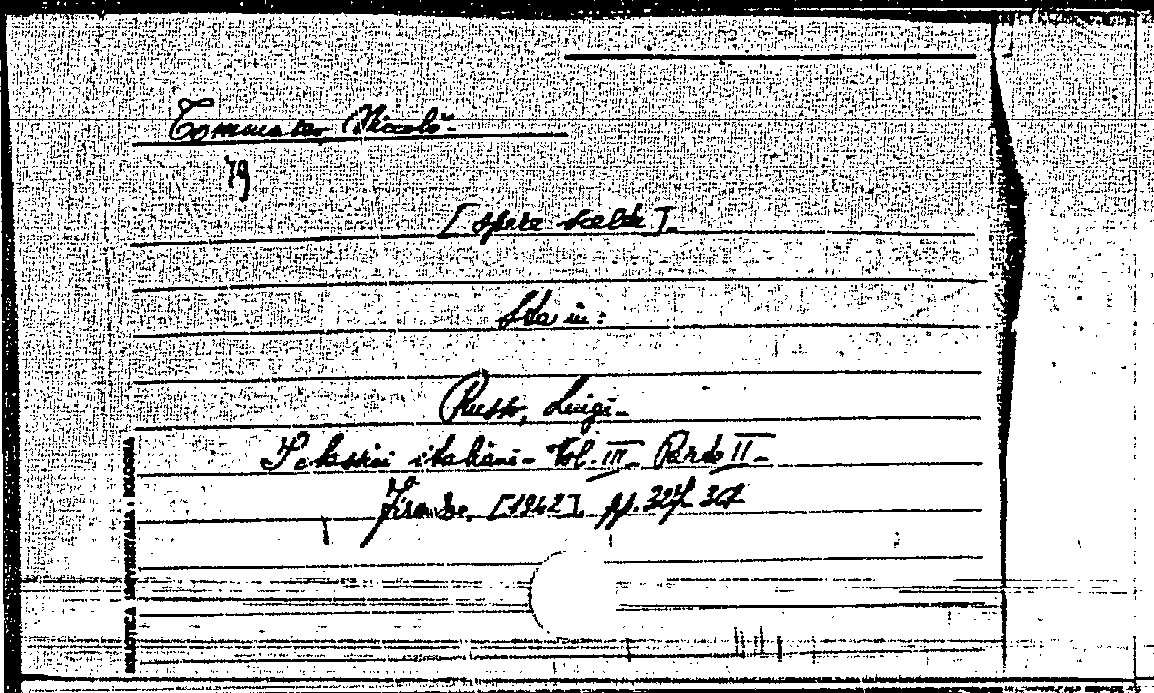 Tommaseo, Niccolò -
79
[Opere scelte].
Sta in:
Russo, Luigi -
I classici italiani - Vol. III - Parte II -
Firenze, [1942],
BIBLIOTECA UNIVERSITARIA : BOLOGNA